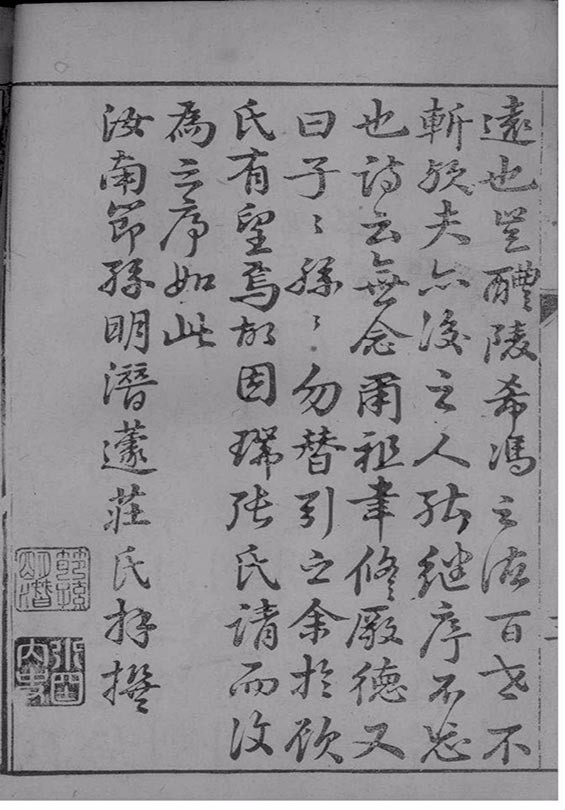 遠也豈醴陵希馮之澤百世不
斬歟夫亦後之人能繼序不忘
也詩云無念爾祖聿修厥德又
曰子〻孫〻勿替引之余於顧
氏有望焉故因瑞張氏請而
為之序如此
汝南節孫明潛蘧莊氏拜撰
節孫明潛